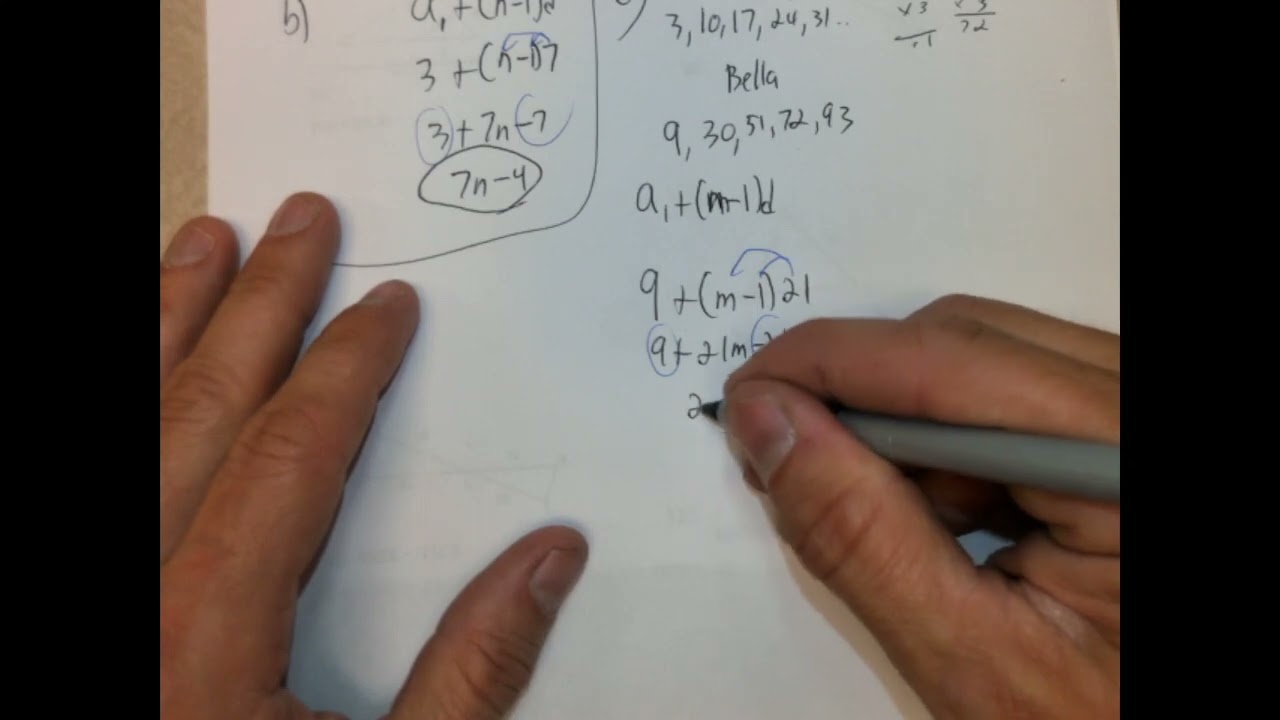 b)
a₁+(n-1)d
3+(n-1)7
3+7n-7
7n-4
3,10,17,24,31..
x3
72
Bella
9,30,51,72,93
a₁+(m-1)d
9+(m-1)21
9+21m-2
2